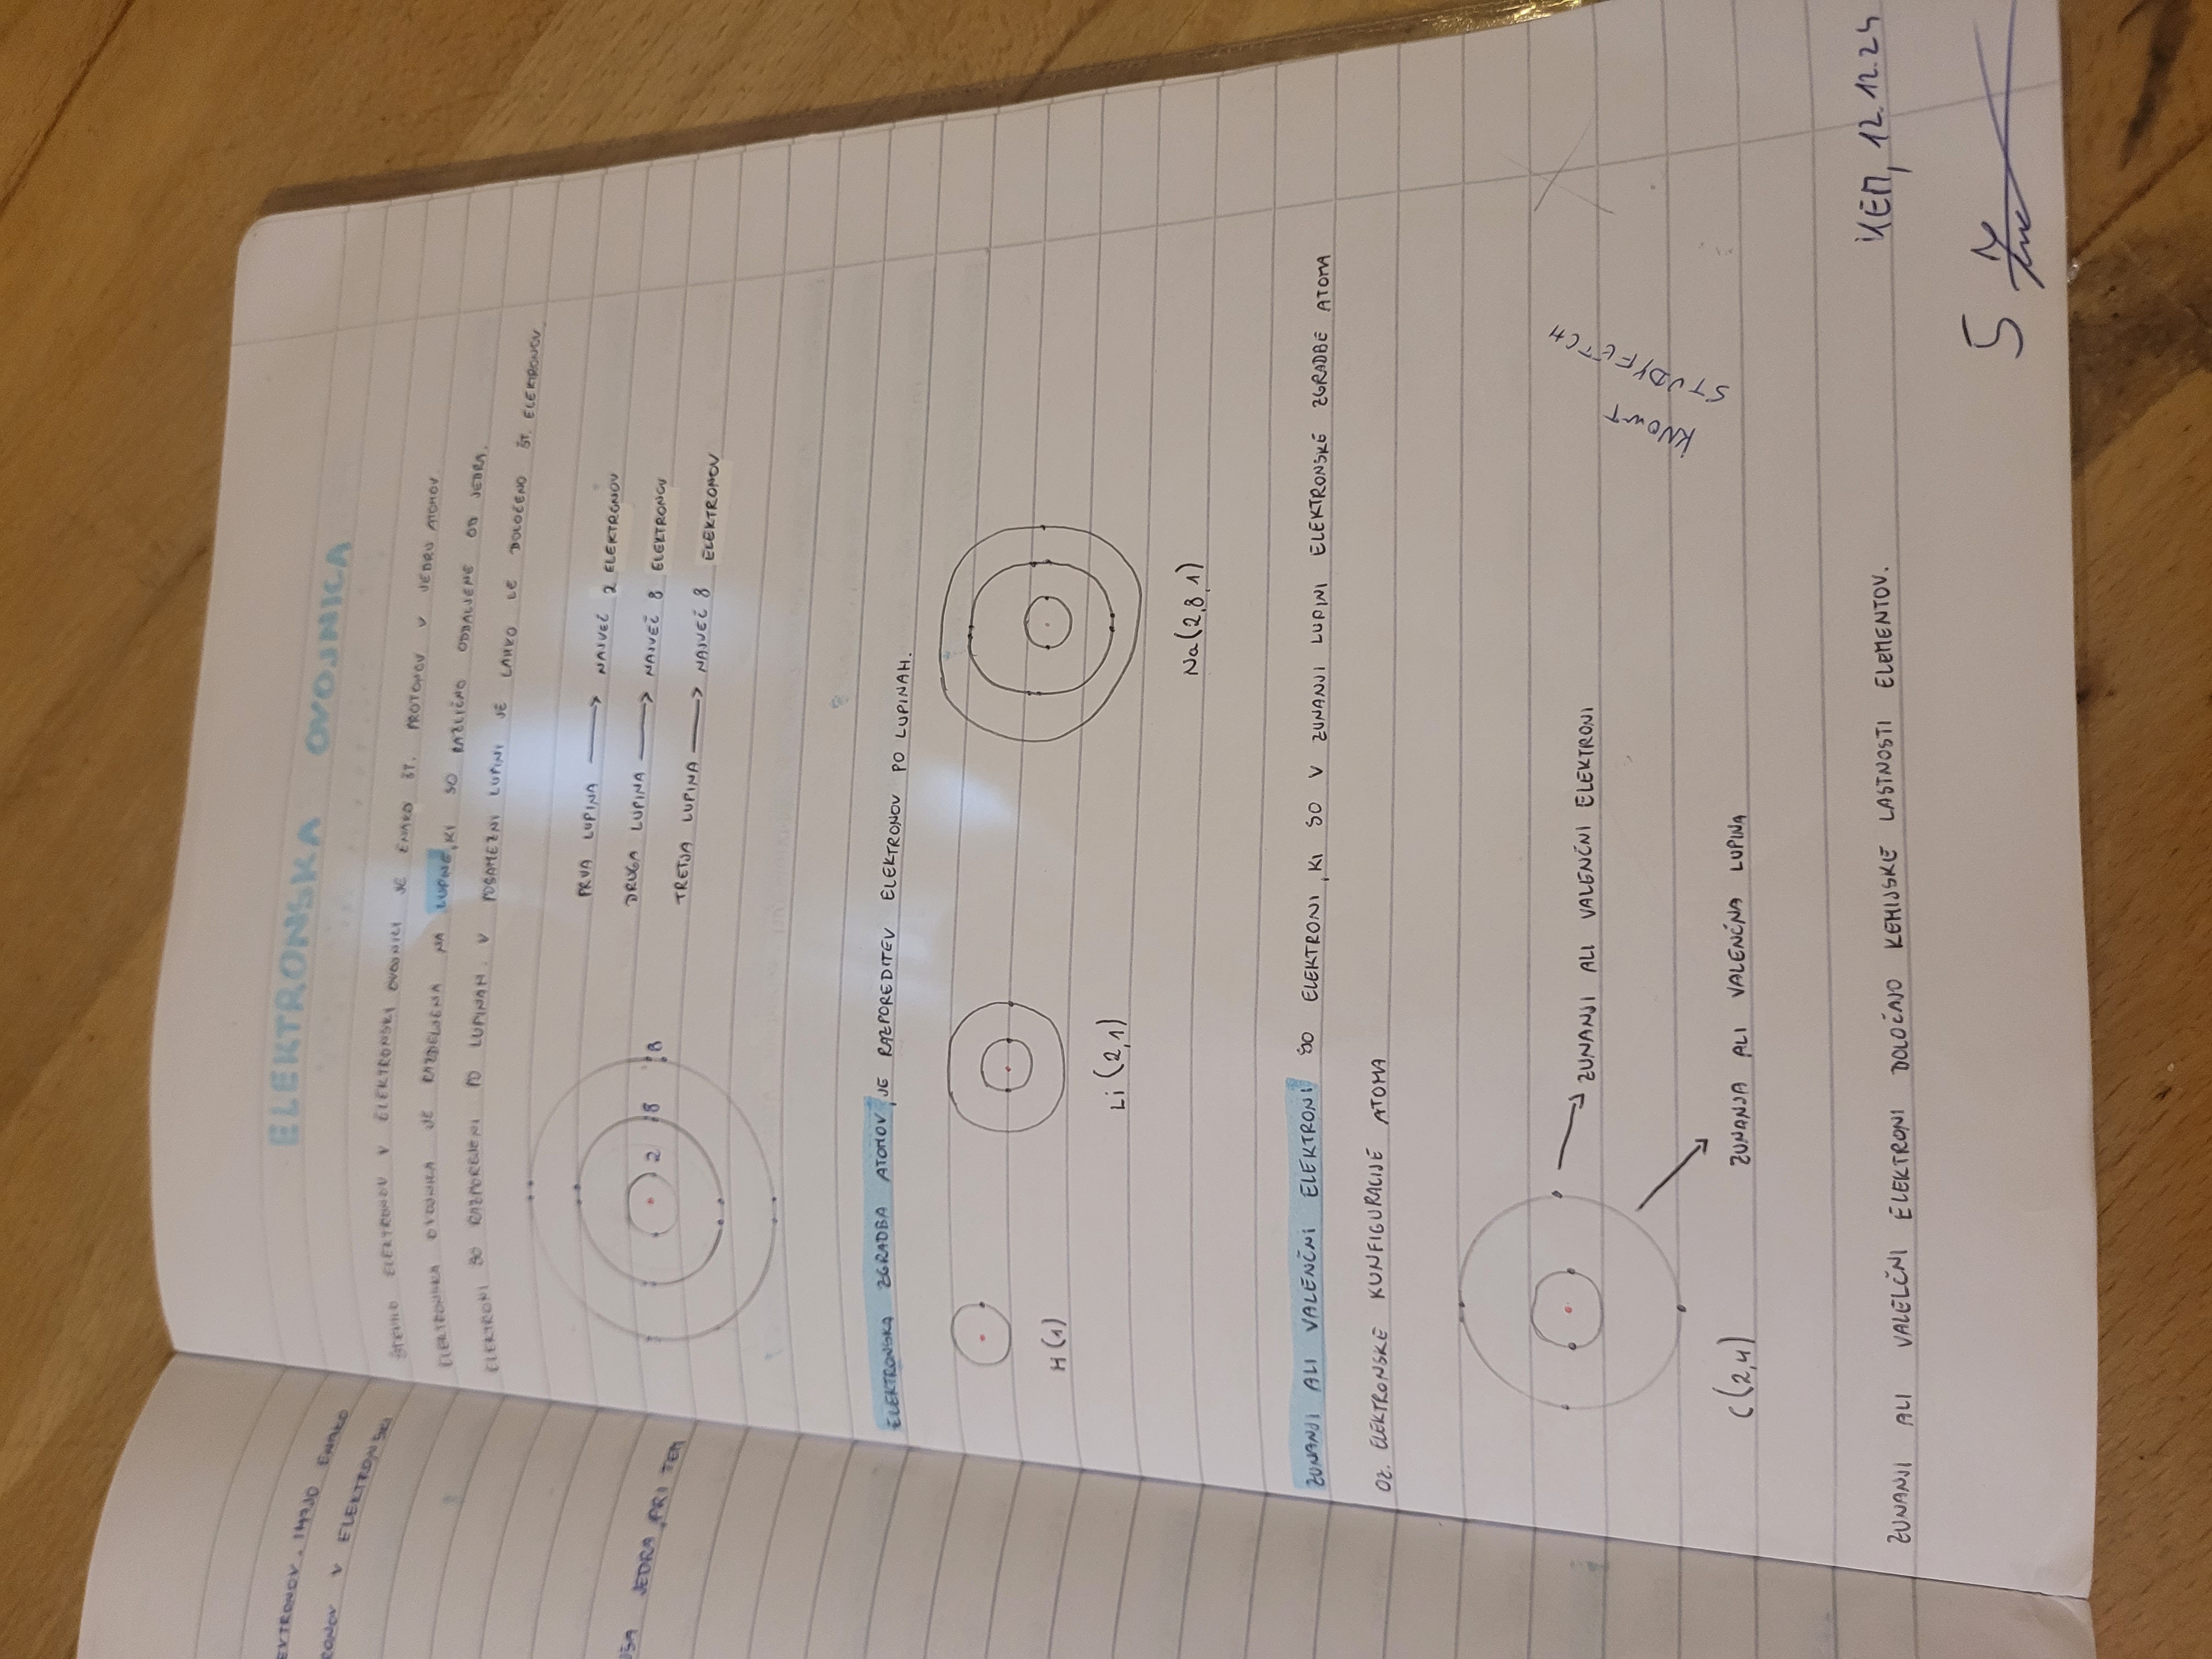 ELEKTRONSKA OVOJNICA
ŠTEVILO ELEKTRONOV V ELEKTRONSKI OVOJNICI JE ENAKO ŠT. PROTONOV V JEDRU ATOMOV.
ELEKTRONSKA OVOJNICA JE RAZDELJENA NA LUPINE, KI SO RAZLIČNO ODDALJENE OD JEDRA.
ELEKTRONI SO RAZPOREJENI PO LUPINAH. V POSAMEZNI LUPINI JE LAHKO LE DOLOČENO ŠT. ELEKTRONOV
2 8 8
PRVA LUPINA → NAJVEČ 2 ELEKTRONOV
DRUGA LUPINA → NAJVEČ 8 ELEKTRONOV
TRETJA LUPINA → NAJVEČ 8 ELEKTRONOV
ELEKTRONSKA ZGRADBA ATOMOV JE RAZPOREDITEV ELEKTRONOV PO LUPINAH.
H (1)
Li (2,1)
Na (2,8,1)
ZUNANJI ALI VALENČNI ELEKTRONI SO ELEKTRONI, KI SO V ZUNANJI LUPINI ELEKTRONSKE ZGRADBE ATOMA
OZ. ELEKTRONSKE KUNFIGURACIJE ATOMA
→ ZUNANJI ALI VALENČNI ELEKTRONI
ZUNANJA ALI VALENČNA LUPINA
C (2,4)
KNOWT
STUDYFETCH
ZUNANJI ALI VALELČNI ELEKTRONI DOLOČAJO KEMIJSKE LASTNOSTI ELEMENTOV.
KEM, 12.12.24
5
IMAJO ENAKO
V ELEKTRONSKI
JEDRA, PRI TEM